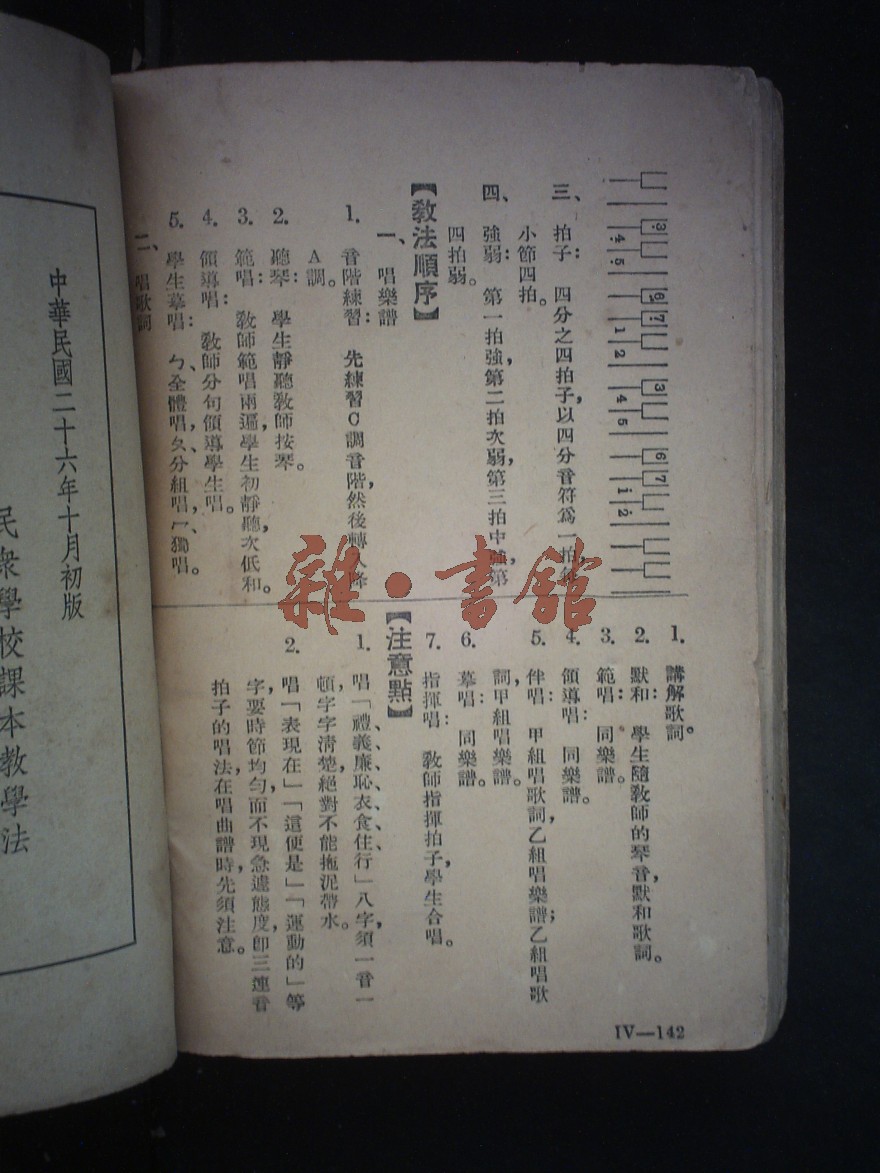 三、拍子：四分之四拍子，以四分音符爲一拍，每
小節四拍。
四、強弱：第一拍強，第二拍次弱，第三拍中強，第
四拍弱。
【教法順序】
一、唱樂譜
1. 音階練習：先練習C調音階，然後轉入降
A調。
2. 聽琴：學生靜聽教師按琴。
3. 範唱：教師範唱兩遍，學生初靜聽，次低和。
4. 領導唱：教師分句領導學生唱。
5. 學生摹唱：ㄅ、全體唱，ㄆ、分組唱，ㄇ、獨唱。
二、唱歌詞
1. 講解歌詞。
2. 默和：學生隨教師的琴音，默和歌詞。
3. 範唱：同樂譜。
4. 領導唱：同樂譜。
5. 伴唱：甲組唱歌詞，乙組唱樂譜；乙組唱歌
詞，甲組唱樂譜。
6. 摹唱：同樂譜。
7. 指揮唱：教師指揮拍子，學生合唱。
【注意點】
1. 唱「禮、義、廉、恥、衣、食、住、行」八字，須一音一
頓，字字清楚，絕對不能拖泥帶水。
2. 唱「表現在」「這便是」「運動的」等
字，要時節均勻，而不現急遽態度，即三連音
拍子的唱法，在唱曲譜時，先須注意。
IV—142
中華民國二十六年十月初版
民衆學校課本教學法
雜·書館